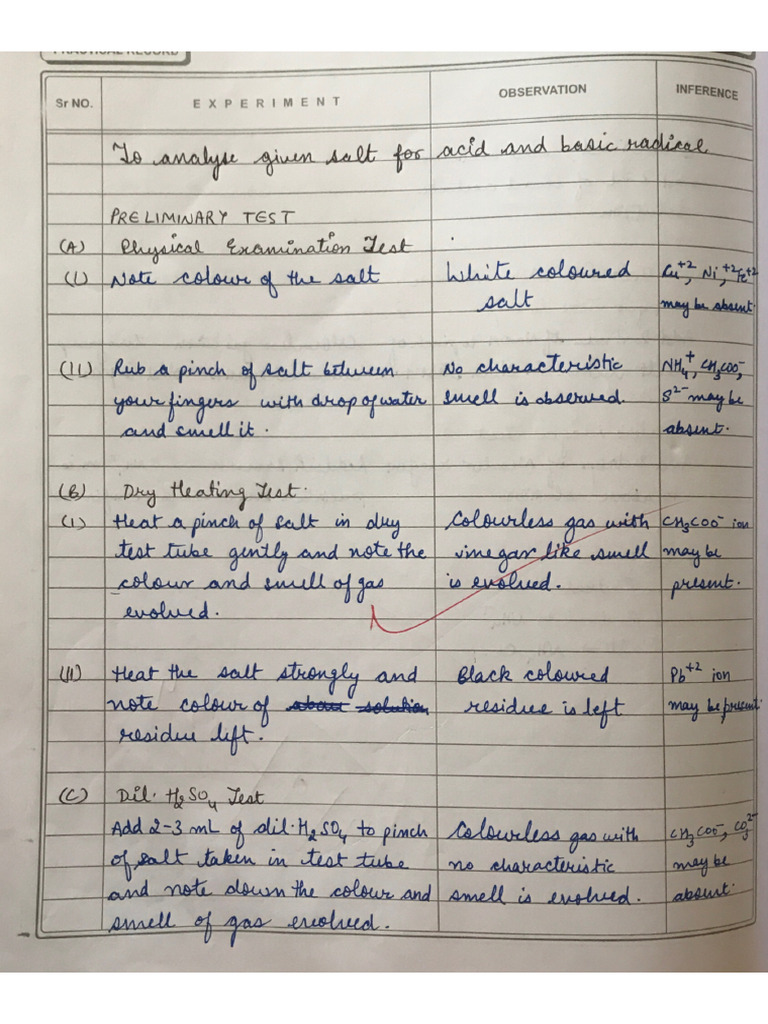 PRACTICAL RECORD
Sr NO. EXPERIMENT OBSERVATION INFERENCE
To analyse given salt for acid and basic radical
PRELIMINARY TEST
(A) Physical Examination Test
(I) Note colour of the salt White coloured Cu+2, Ni+2, Fe+2
salt may be absent.
(II) Rub a pinch of salt between No characteristic NH4+, CH3COO-,
your fingers with drop of water smell is observed. S2- may be
and smell it. absent.
(B) Dry Heating Test.
(I) Heat a pinch of salt in dry Colourless gas with CH3COO- ion
test tube gently and note the vinegar like smell may be
colour and smell of gas is evolved. present.
evolved.
(II) Heat the salt strongly and Black coloured Pb+2 ion
note colour of about solution residue is left may be present.
residue left.
(C) Dil. H2SO4 Test
Add 2-3 mL of dil. H2SO4 to pinch Colourless gas with CH3COO-, CO3 2-
of salt taken in test tube no characteristic may be
and note down the colour and smell is evolved. absent.
smell of gas evolved.